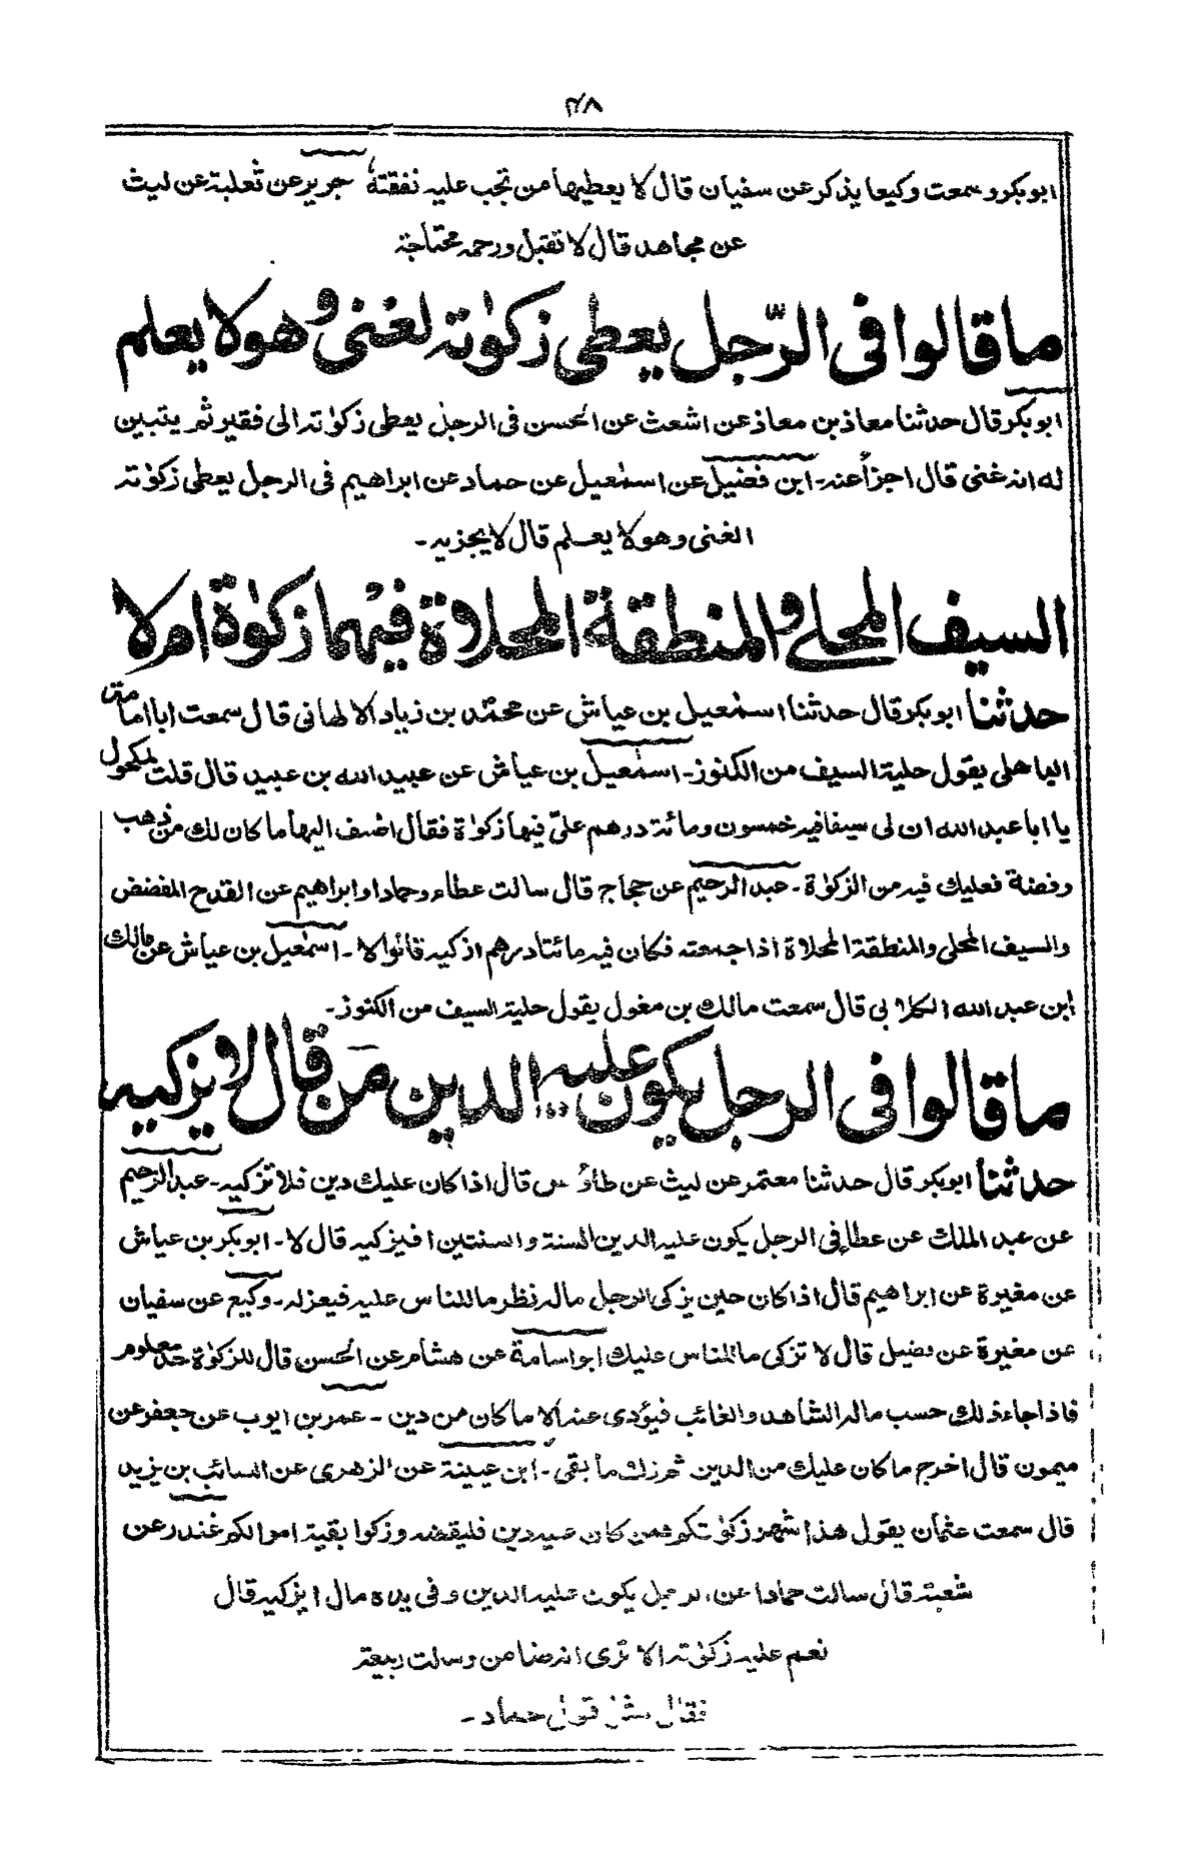 ٤٨
ابوبكر وسمعت وكيعا يذكر عن سفيان قال لا يعطيها من تجب عليه نفقته جرير عن ثعلبة عن ليث
عن مجاهد قال لا تقبل ورحمه محتاجة
ما قالوا فى الرّجل يعطى زكوٰته لغنى وهو لا يعلم
ابوبكر قال حدثنا معاذ بن معاذ عن اشعث عن الحسن فى الرجل يعطى زكوٰته الى فقير ثم يتبين
له انه غنى قال اجزأ عنه - ابن فضيل عن اسمٰعيل عن حماد عن ابراهيم فى الرجل يعطى زكوٰته
الغنى وهو لا يعلم قال لا يجزيه -
السيف المحلى والمنطقة المحلاة فيهما زكوٰة ام لا
حدثنا ابوبكر قال حدثنا اسمٰعيل بن عياش عن محمّد بن زياد الالهانى قال سمعت ابا امامة
الباهلى يقول حلية السيف من الكنوز - اسمٰعيل بن عياش عن عبيد الله بن عبيد قال قلت لمكحول
يا ابا عبد الله ان لى سيفا فيه خمسون ومائة درهم علىّ فيها زكوٰة فقال اضف اليها ما كان لك من ذهب
وفضة فعليك فيه من الزكوٰة - عبد الرحيم عن حجاج قال سالت عطاء وحمادا وابراهيم عن القدح المفضض
والسيف المحلى والمنطقة المحلاة اذا جمعته فكان فيه مائتا درهم ازكيه قالوا لا - اسمٰعيل بن عياش عن مالك
ابن عبد الله الكلابى قال سمعت مالك بن مغول يقول حلية السيف من الكنوز -
ما قالوا فى الرجل يكون عليه الدين مَن قال لا يزكيه
حدثنا ابوبكر قال حدثنا معتمر عن ليث عن طاؤس قال اذا كان عليك دين فلا تزكيه - عبد الرحيم
عن عبد الملك عن عطاء فى الرجل يكون عليه الدين السنة والسنتين افيزكيه قال لا - ابوبكر بن عياش
عن مغيرة عن ابراهيم قال اذا كان حين يزكى الرجل ماله نظر ما للناس عليه فيعزله - وكيع عن سفيان
عن مغيرة عن فضيل قال لا تزكى ما للناس عليك ابو اسامة عن هشام عن الحسن قال للزكوٰة حد معلوم
فاذا جاء ذلك حسب ماله الشاهد والغائب فيؤدى عنه الا ما كان من دين - عمر بن ايوب عن جعفر عن
ميمون قال اخرج ما كان عليك من الدين ثم زك ما بقى - ابن عيينة عن الزهرى عن السائب بن يزيد
قال سمعت عثمان يقول هذا شهر زكوٰتكم فمن كان عليه دين فليقضه وزكوا بقية اموالكم غندر عن
شعبة قال سالت حمادا عن الرجل يكون عليه الدين وفى يده مال ايزكيه قال
نعم عليه زكوٰته الا ترى انه ضامن وسالت ربيعة
فقال مثل قول حماد -